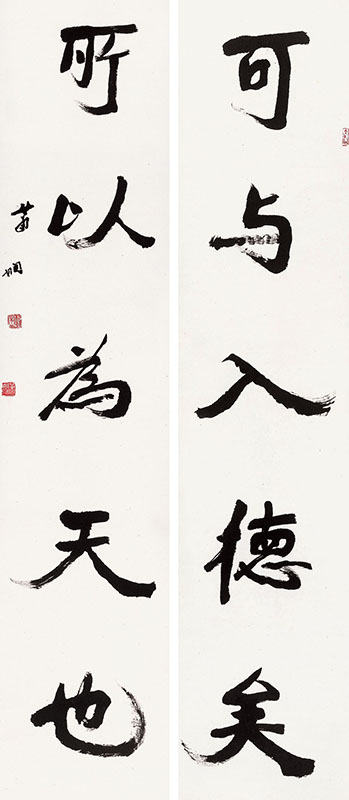 可与入德矣
所以為天也
萧娴